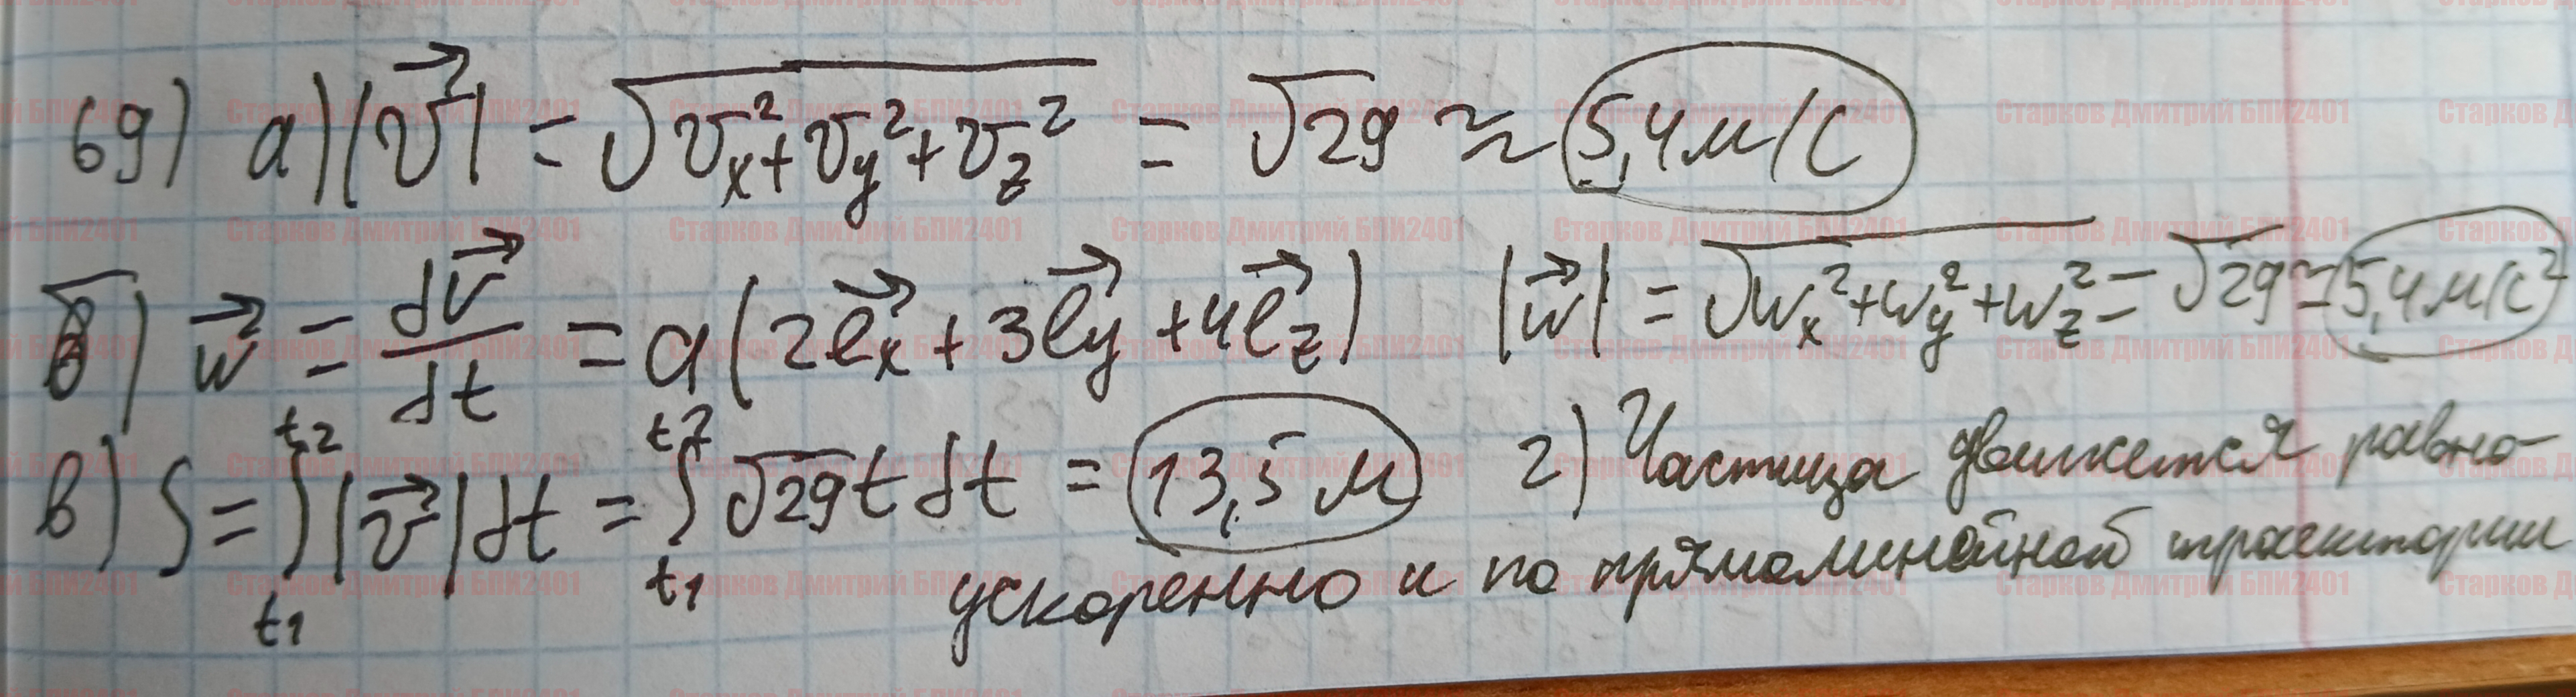 69) а) |v⃗| = √(vₓ² + v_y² + v_z²) = √29 ≈ 5,4 м/с
б) w⃗ = dv⃗/dt = a(2e⃗ₓ + 3e⃗_y + 4e⃗_z) |w⃗| = √(wₓ² + w_y² + w_z²) = √29 ≈ 5,4 м/с²
в) S = ∫_{t1}^{t2} |v⃗| dt = ∫_{t1}^{t2} √29 t dt = 13,5 м г) Частица движется равно-
ускоренно и по прямолинейной траектории
Старков Дмитрий БПИ2401